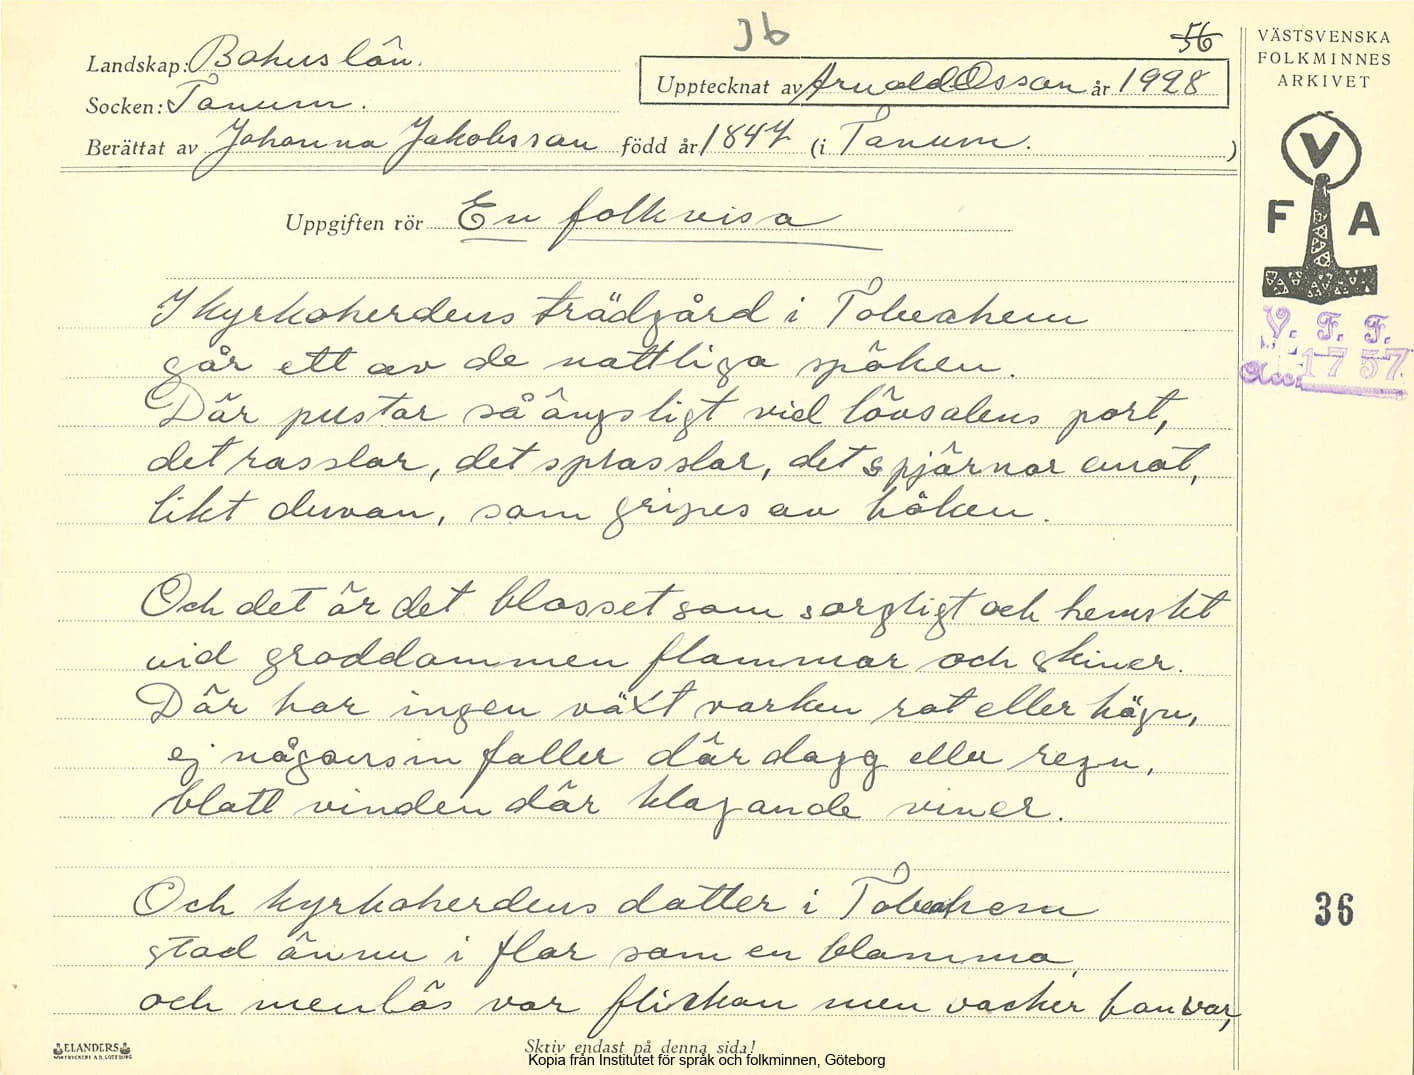 36
56
Landskap: Bohuslän.
Socken: Tanum.
Upptecknat av Arnold Olsson år 1928
Berättat av Johanna Jakobsson född år 1847 (i Tanum. )
Uppgiften rör En folkvisa
I kyrkoherdens trädgård i Tobeahem
går ett av de nattliga spöken.
Där pustar så ängsligt vid lövsalens port,
det rasslar, det sprasslar, det spjärnar emot,
likt duvan, som gripes av höken.
Och det är det blosset som sorgligt och hemskt
vid groddammen flammar och skiner.
Där har ingen växt varken rot eller hägn,
ej någonsin faller där dagg eller regn,
blott vinden där klagande viner.
Och kyrkoherdens dotter i Tobeahem
stod ännu i flor som en blomma,
och menlös var flickan men vacker hon var,
VÄSTSVENSKA
FOLKMINNES
ARKIVET
V
F A
V. F. F.
Acc. 1757
36
ELANDERS
BOKTRYCKERI A.B. GÖTEBORG
Skriv endast på denna sida!
Kopia från Institutet för språk och folkminnen, Göteborg